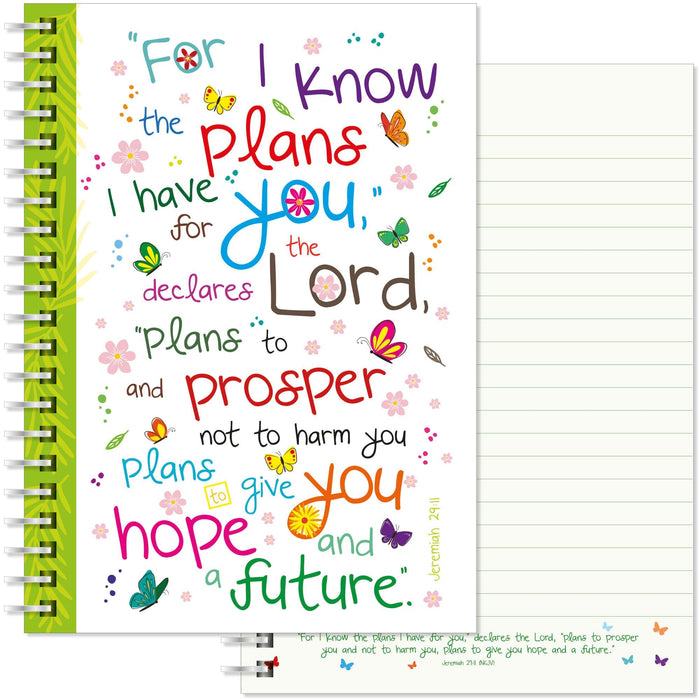 "For I Know
the plans
I have
for you,"
the
declares Lord,
"plans to
and prosper
not to harm you
plans to give you
hope and
a future".
Jeremiah 29:11
"For I know the plans I have for you," declares the Lord, "plans to prosper
you and not to harm you, plans to give you hope and a future."
Jeremiah 29:11 (NKJV)